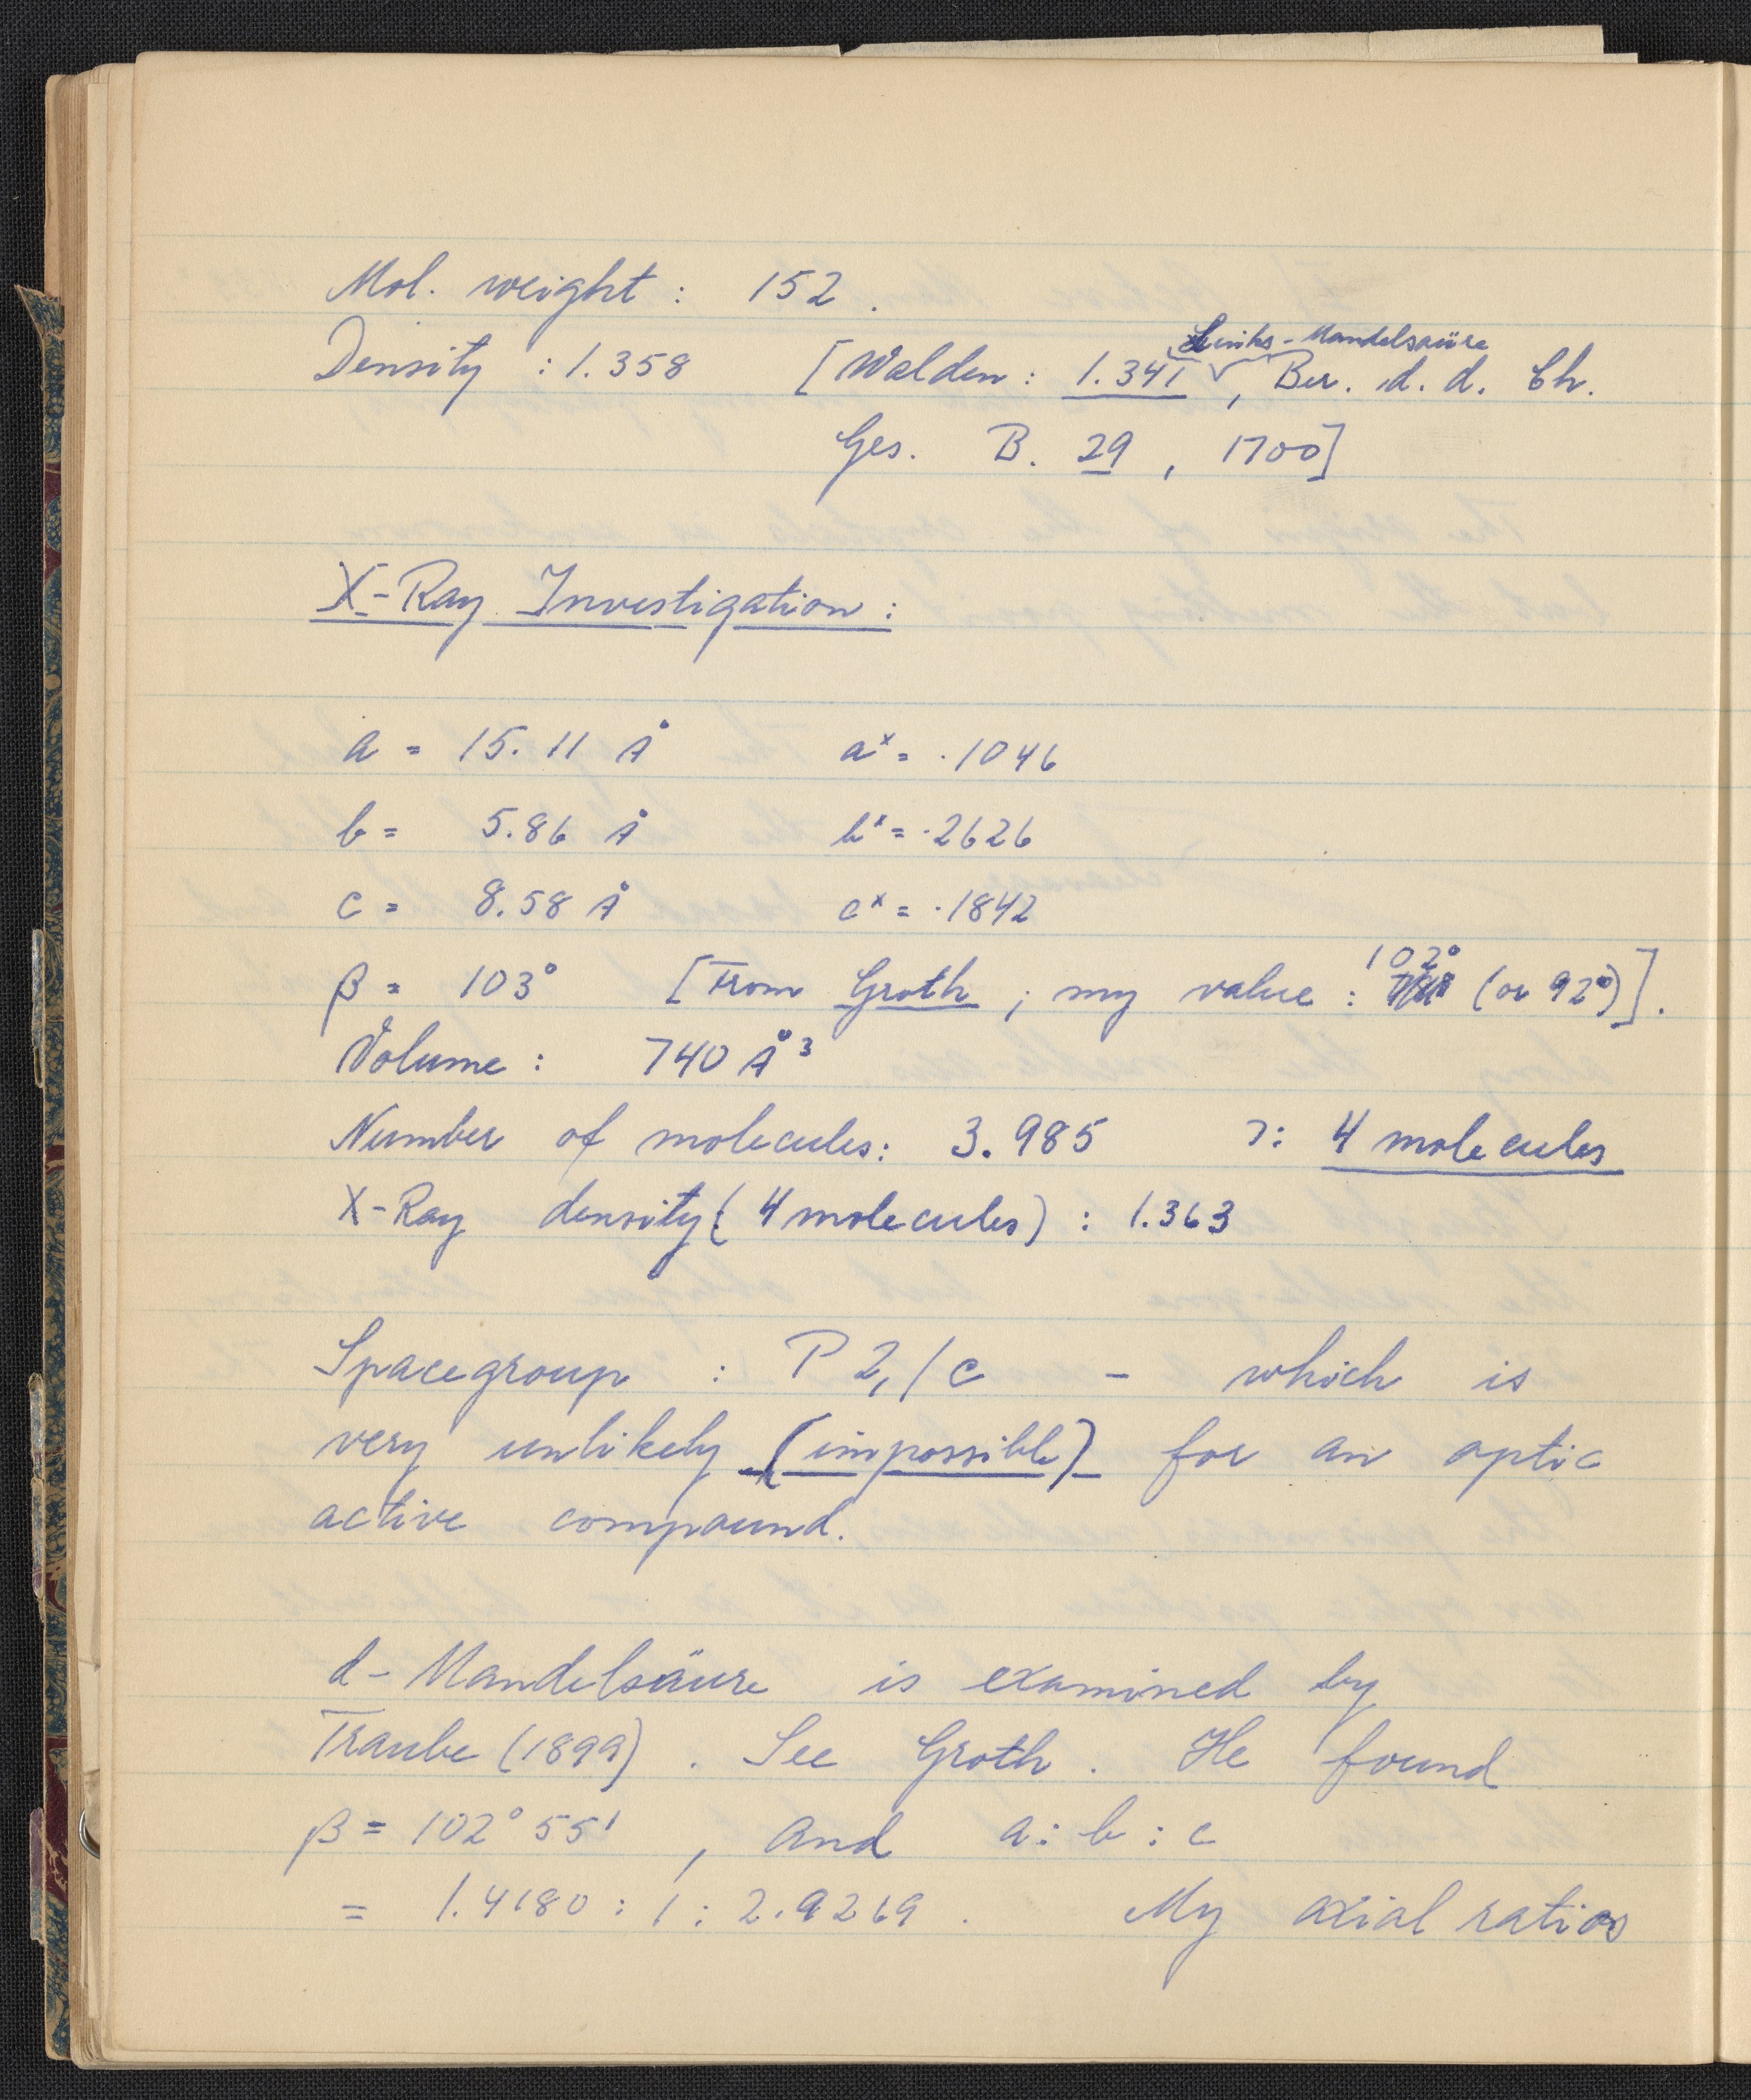 Mol. weight : 152 .
Links - Mandelsaüre
Density : 1.358 [Walden : 1.341 √ , Ber. d. d. Ch.
Ges. B. 29 , 1700]
X-Ray Investigation :
a = 15.11 Å aˣ = .1046
b = 5.86 Å bˣ = .2626
c = 8.58 Å cˣ = .1842
β = 103° [From Groth ; my value : 102° (or 92°)].
Volume : 740 Å³
Number of molecules: 3.985 ɔ: 4 molecules
X-Ray density (4 molecules) : 1.363
Spacegroup : P 2₁/c – which is
very unlikely (impossible) for an optic
active compound.
d- Mandelsäure is examined by
Traube (1899) . See Groth . He found
β = 102° 55' , and a : b : c
= 1.4180 : 1 : 2.9269 . My axial ratios